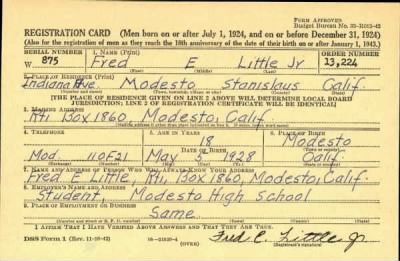 FORM APPROVED
Budget Bureau No. 33-R012-42
REGISTRATION CARD (Men born on or after July 1, 1924, and on or before December 31, 1924)
(Also for the registration of men as they reach the 18th anniversary of the date of their birth on or after January 1, 1943.)
SERIAL NUMBER 1. NAME (Print) ORDER NUMBER
W 875 Fred E Little Jr 13,224
(First) (Middle) (Last)
2. PLACE OF RESIDENCE (Print)
Indiana Ave. Modesto Stanislaus Calif.
(Number and street) (Town, township, village, or city) (County) (State)
[THE PLACE OF RESIDENCE GIVEN ON LINE 2 ABOVE WILL DETERMINE LOCAL BOARD
JURISDICTION; LINE 2 OF REGISTRATION CERTIFICATE WILL BE IDENTICAL]
3. MAILING ADDRESS
Rt1 Box 1860 Modesto, Calif
4. TELEPHONE 5. AGE IN YEARS 6. PLACE OF BIRTH
18 Modesto
DATE OF BIRTH
Mod. 110F21 May 5 1928 Calif.
(Exchange) (Number) (Mo.) (Day) (Yr.) (State or country)
7. NAME AND ADDRESS OF PERSON WHO WILL ALWAYS KNOW YOUR ADDRESS
Fred E Little, Rt1, Box 1860, Modesto, Calif.
8. EMPLOYER'S NAME AND ADDRESS
Student, Modesto High School
9. PLACE OF EMPLOYMENT OR BUSINESS
Same
(Number and street or R. F. D. number) (Town) (County) (State)
I AFFIRM THAT I HAVE VERIFIED ABOVE ANSWERS AND THAT THEY ARE TRUE.
DSS Form 1 (Rev. 11-16-42) (OVER) Fred E. Little Jr
(Registrant's signature)